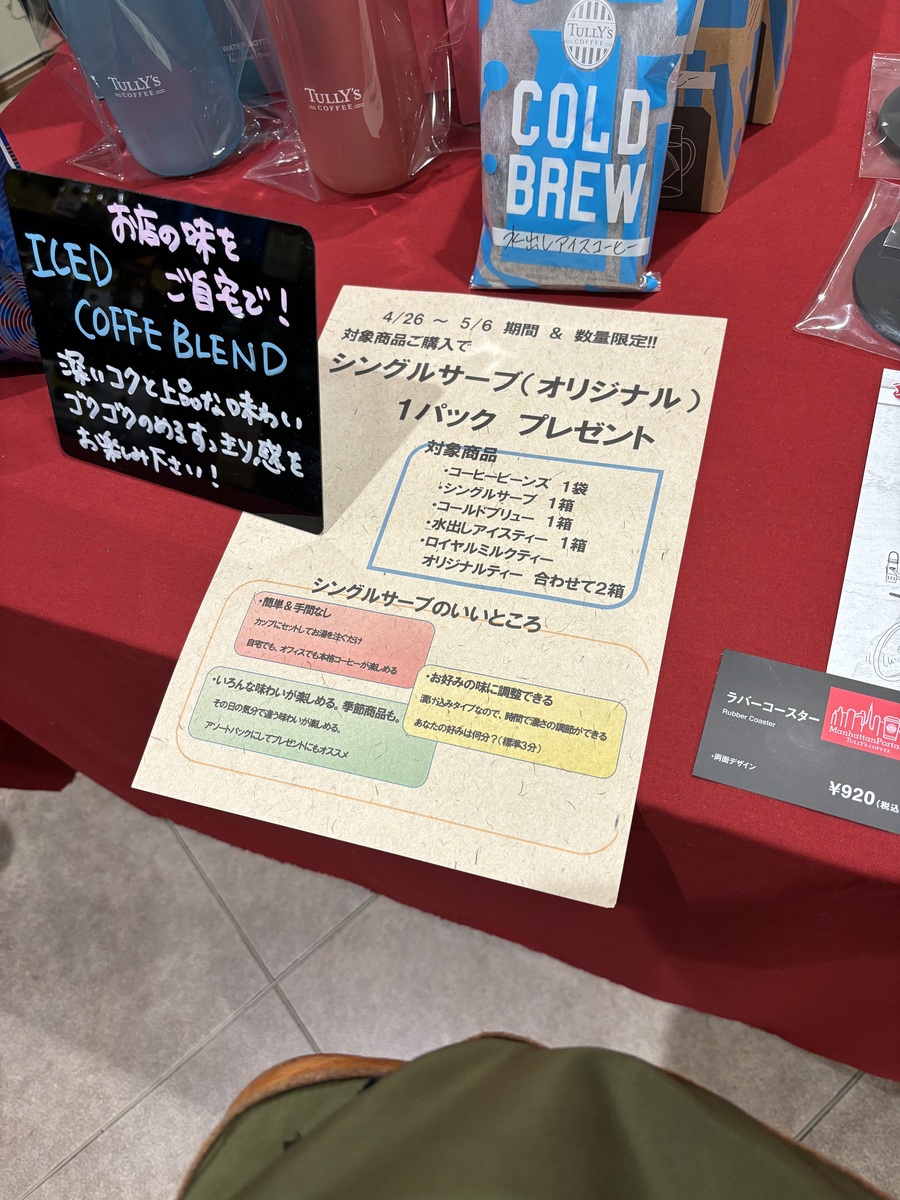 TULLY'S
COFFEE
WATER BOTT
TULLY'S
COFFEE
TULLY'S
COFFEE
COLD
BREW
水出しアイスコーヒー
お店の味を
ICED
ご自宅で!
COFFE BLEND
深いコクと上品な味わい
ゴクゴクのめるすっきり感を
お楽しみ下さい!
4/26 ～ 5/6 期間 & 数量限定!!
対象商品ご購入で
シングルサーブ(オリジナル)
1パック プレゼント
対象商品
・コーヒービーンズ 1袋
・シングルサーブ 1箱
・コールドブリュー 1箱
・水出しアイスティー 1箱
・ロイヤルミルクティー
オリジナルティー 合わせて2箱
シングルサーブのいいところ
・簡単&手間なし
カップにセットしてお湯を注ぐだけ
自宅でも、オフィスでも本格コーヒーが楽しめる
・お好みの味に調整できる
漬け込みタイプなので、時間で濃さの調節ができる
あなたの好みは何分?(標準3分)
・いろんな味わいが楽しめる。季節商品も。
その日の気分で違う味わいが楽しめる。
アソートパックにしてプレゼントにもオススメ
ラバーコースター
Rubber Coaster
・両面デザイン
ManhattanPorta
TULLY'S COFFEE
¥920(税込